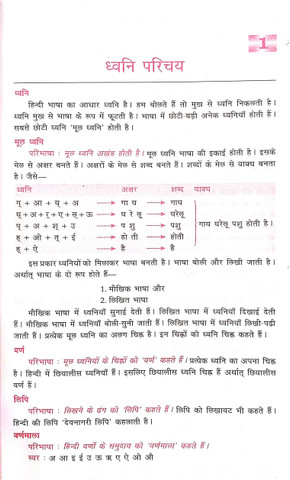 1
ध्वनि परिचय
ध्वनि
हिन्दी भाषा का आधार ध्वनि है। हम बोलते हैं तो मुख से ध्वनि निकलती है।
ध्वनि मुख से भाषा के रूप में फूटती है। भाषा में छोटी-बड़ी अनेक ध्वनियाँ होती हैं।
सबसे छोटी ध्वनि 'मूल ध्वनि' होती है।
मूल ध्वनि
परिभाषा : मूल ध्वनि अखंड होती है। मूल ध्वनि भाषा की इकाई होती है। इसके
मेल से अक्षर बनते हैं। अक्षरों के मेल से शब्द बनते हैं। शब्दों के मेल से वाक्य बनता
है। जैसे—
ध्वनि अक्षर शब्द वाक्य
ग् + आ + य् + अ गा य गाय
घ् + अ + र् + ए + ल् + ऊ घ रे लू घरेलू
प् + अ + श् + उ प शु पशु गाय घरेलू पशु होती है।
ह् + ओ + त् + ई हो ती होती
ह् + ऐ है है
इस प्रकार ध्वनियों को मिलाकर भाषा बनती है। भाषा बोली और लिखी जाती है।
अर्थात् भाषा के दो रूप होते हैं—
1. मौखिक भाषा और
2. लिखित भाषा
मौखिक भाषा में ध्वनियाँ सुनाई देती हैं। लिखित भाषा में ध्वनियाँ दिखाई देती
हैं। मौखिक भाषा में ध्वनियाँ बोली-सुनी जाती हैं। लिखित भाषा में ध्वनियाँ लिखी-पढ़ी
जाती हैं। प्रत्येक मूल ध्वनि का अलग चिह्न है। इन चिह्नों को ध्वनि चिह्न कहते हैं।
वर्ण
परिभाषा : मूल ध्वनियों के चिह्नों को 'वर्ण' कहते हैं। प्रत्येक ध्वनि का अपना चिह्न
है। हिन्दी में छियालीस ध्वनियाँ हैं। इसलिए छियालीस ध्वनि चिह्न हैं अर्थात् छियालीस
वर्ण हैं।
लिपि
परिभाषा : लिखने के ढंग को 'लिपि' कहते हैं। लिपि को लिखावट भी कहते हैं।
हिन्दी की लिपि 'देवनागरी लिपि' कहलाती है।
वर्णमाला
परिभाषा : हिन्दी वर्णों के समुदाय को 'वर्णमाला' कहते हैं।
स्वर : अ आ इ ई उ ऊ ऋ ए ऐ ओ औ